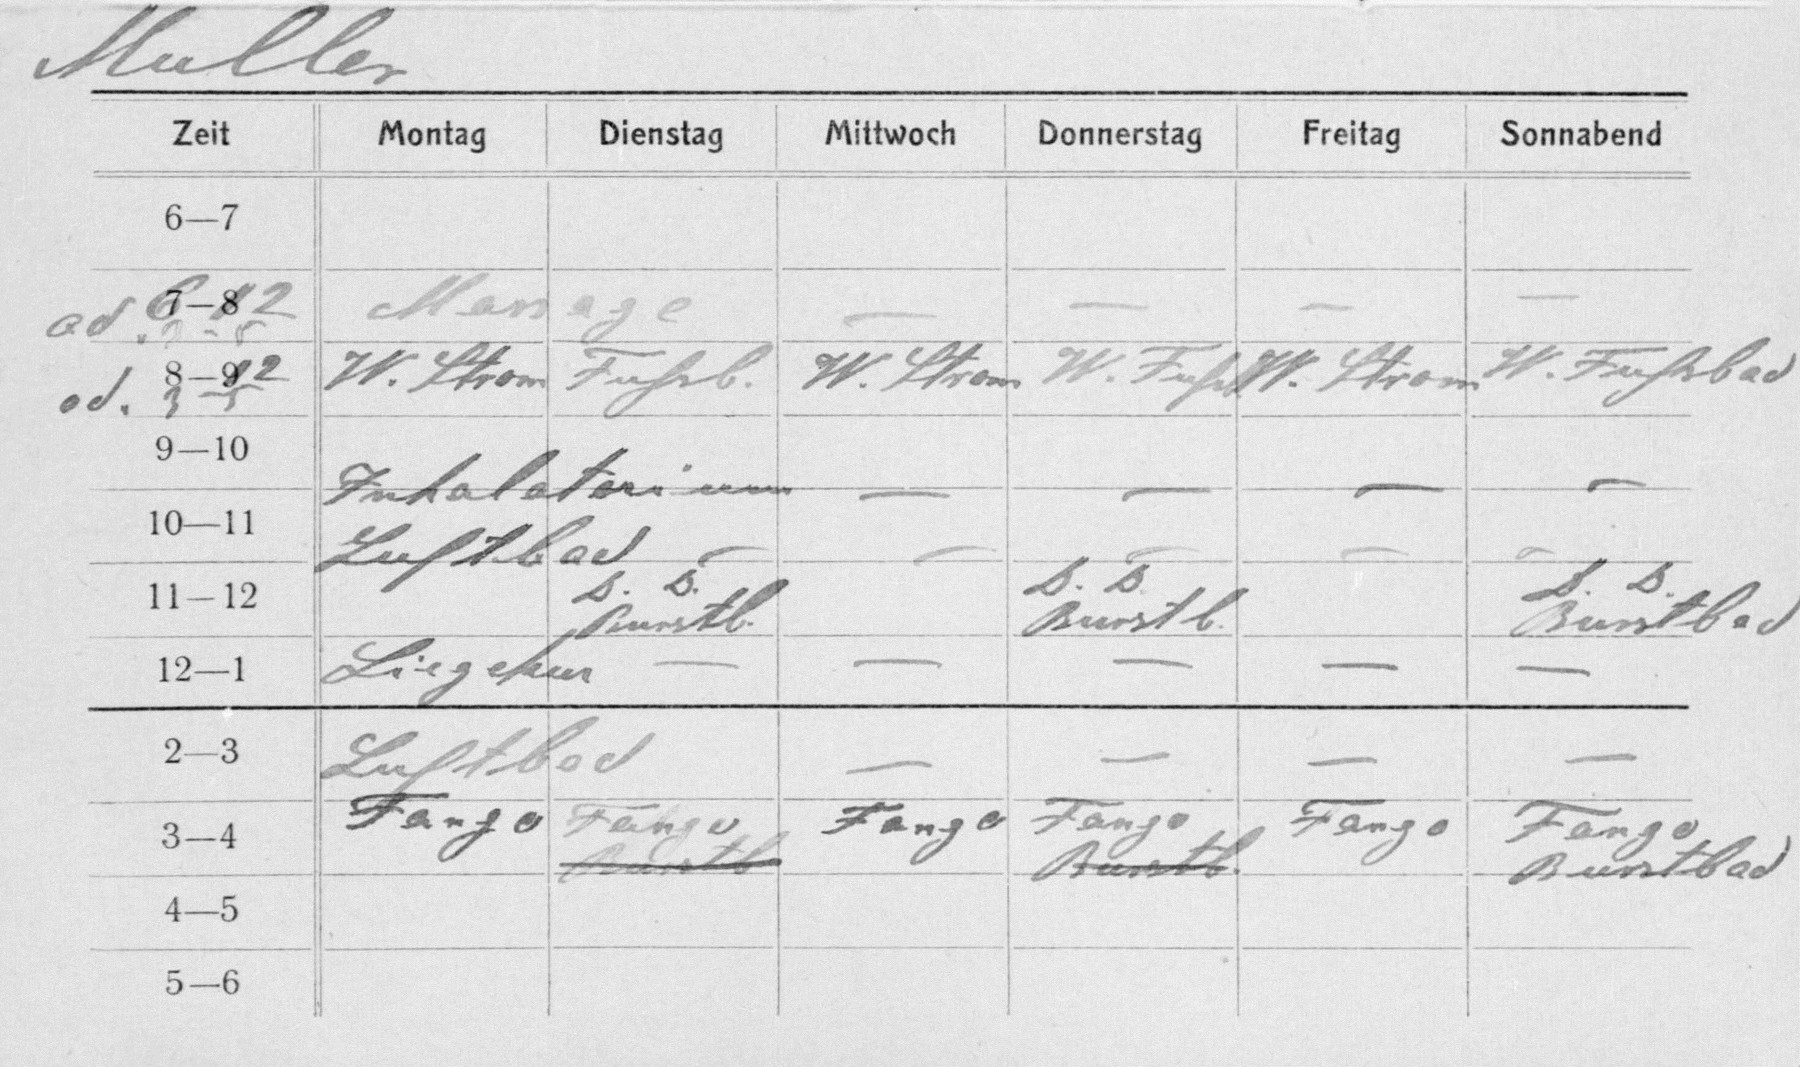 Muller
Zeit Montag Dienstag Mittwoch Donnerstag Freitag Sonnabend
6—7
7—8 6-12 Massage — — — —
od. 3-5
8—9 12 W. Strom Fußb. W. Strom W. Fußb. W. Strom W. Fußbad
od. 3-5
9—10
Inhalatorium — — — —
10—11
Luftbad — — — — —
11—12 D. D. D. D. D. D.
Burstb. Burstb. Burstbad
12—1 Liegekur — — — — —
2—3 Luftbad — — — —
Fango Fango Fango Fango Fango Fango
3—4
Burstb Burstb. Burstbad
4—5
5—6